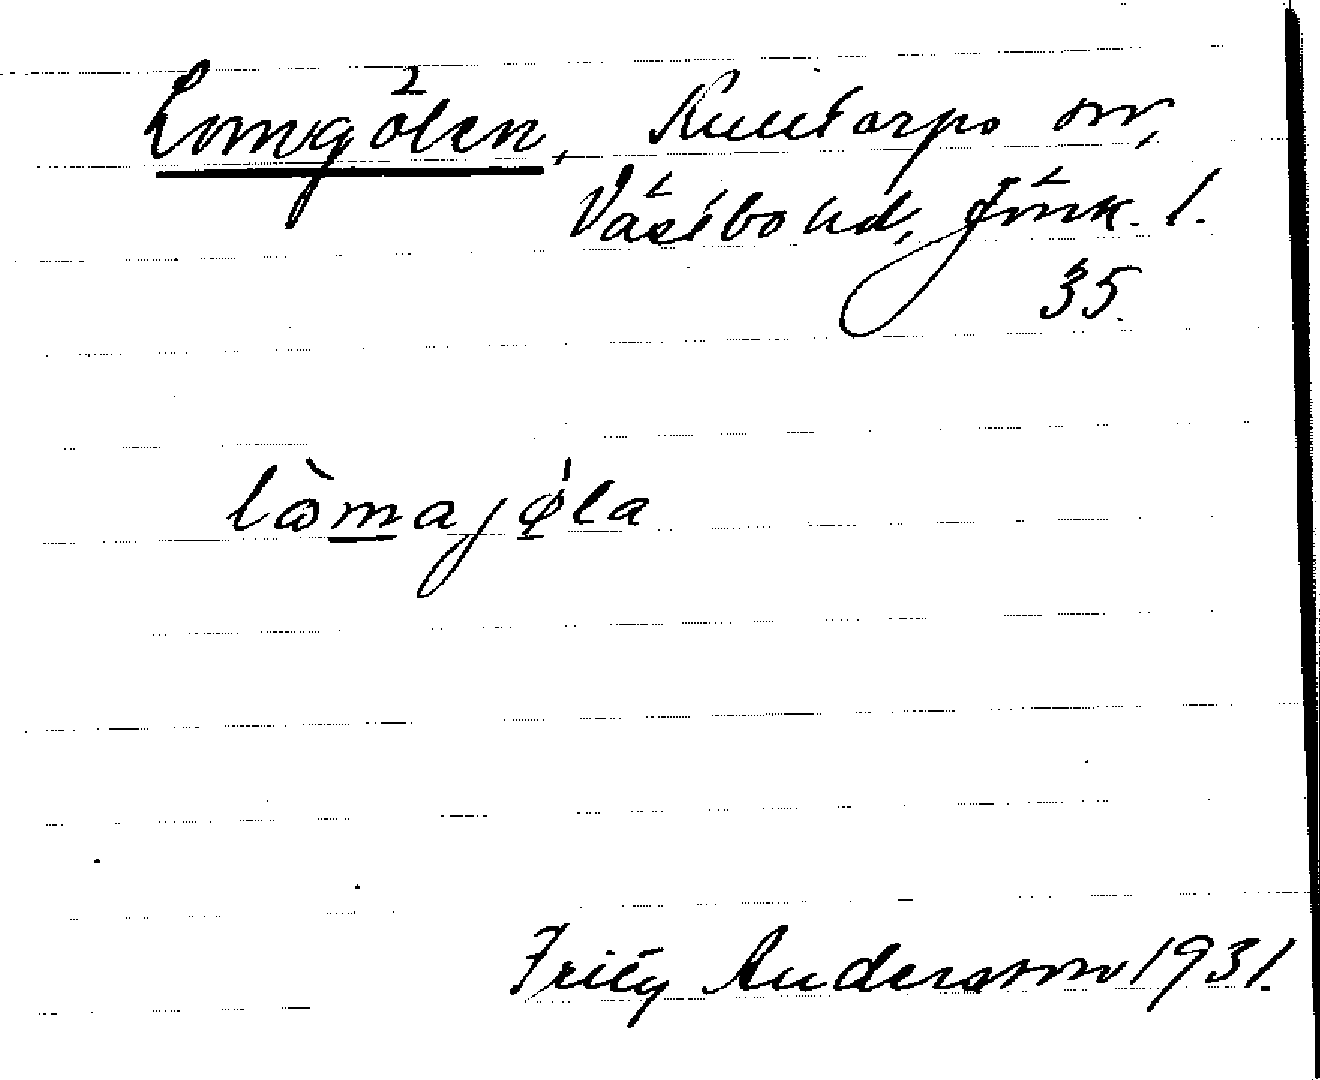 Lomgölen, Kulltorps sn,
Västbo hd, Jönk. l.
35.
lꞷ̀majǿla
Fritz Andersson 1931.